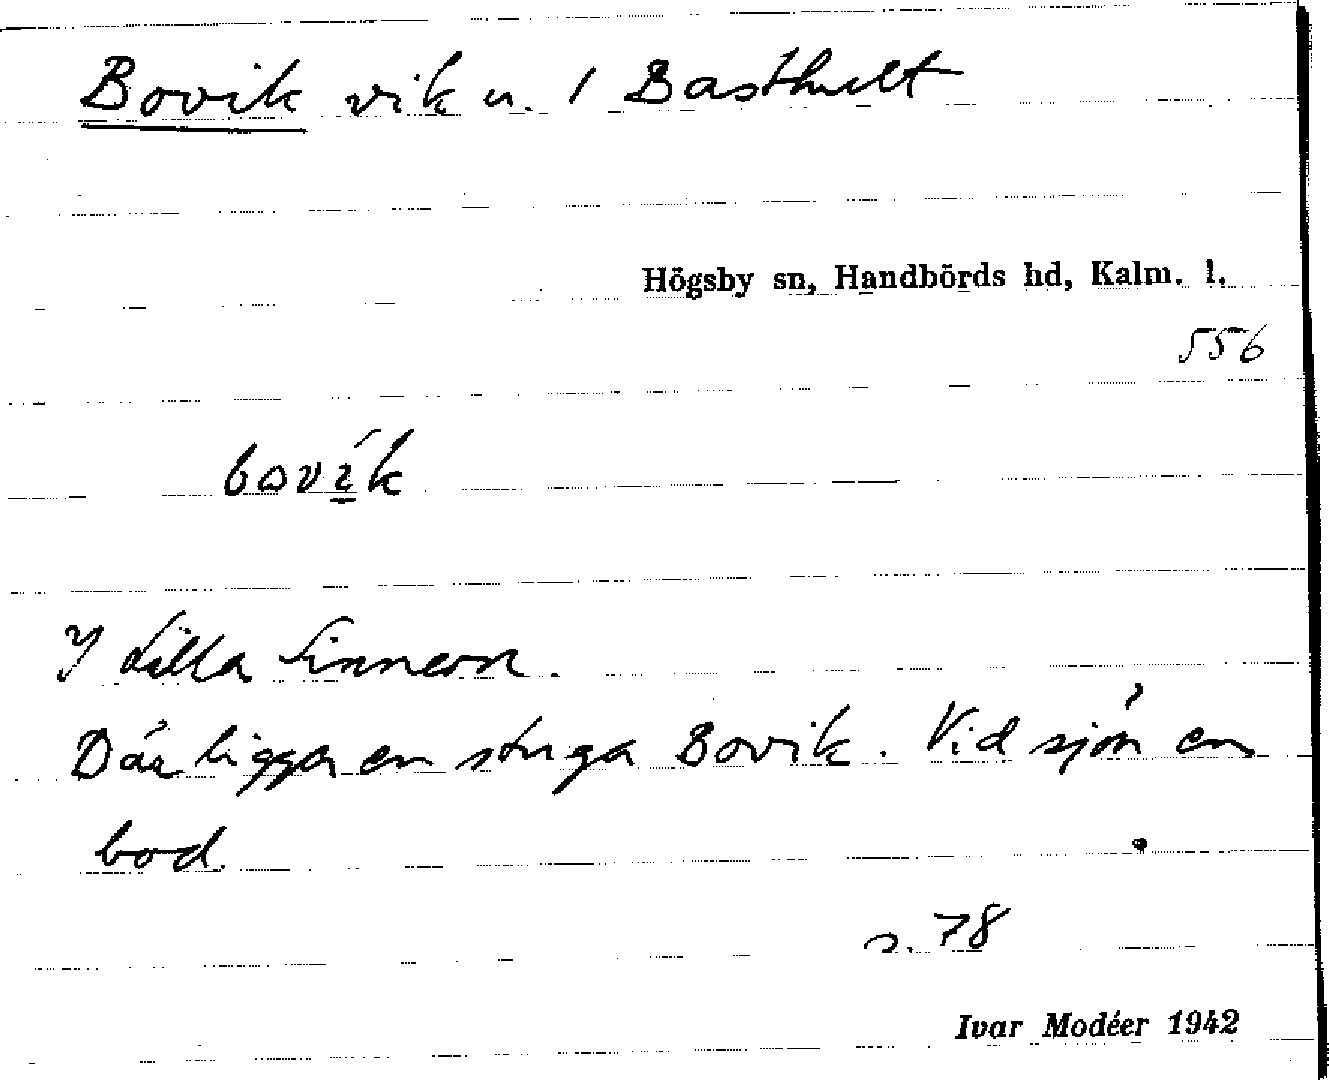 Bovik vik u. 1 Basthult
Högsby sn, Handbörds hd, Kalm. l.
556
bovík
I Lilla Sinnern.
Där ligger en stuga Bovik. Vid sjön en
bod.
s. 78
Ivar Modéer 1942